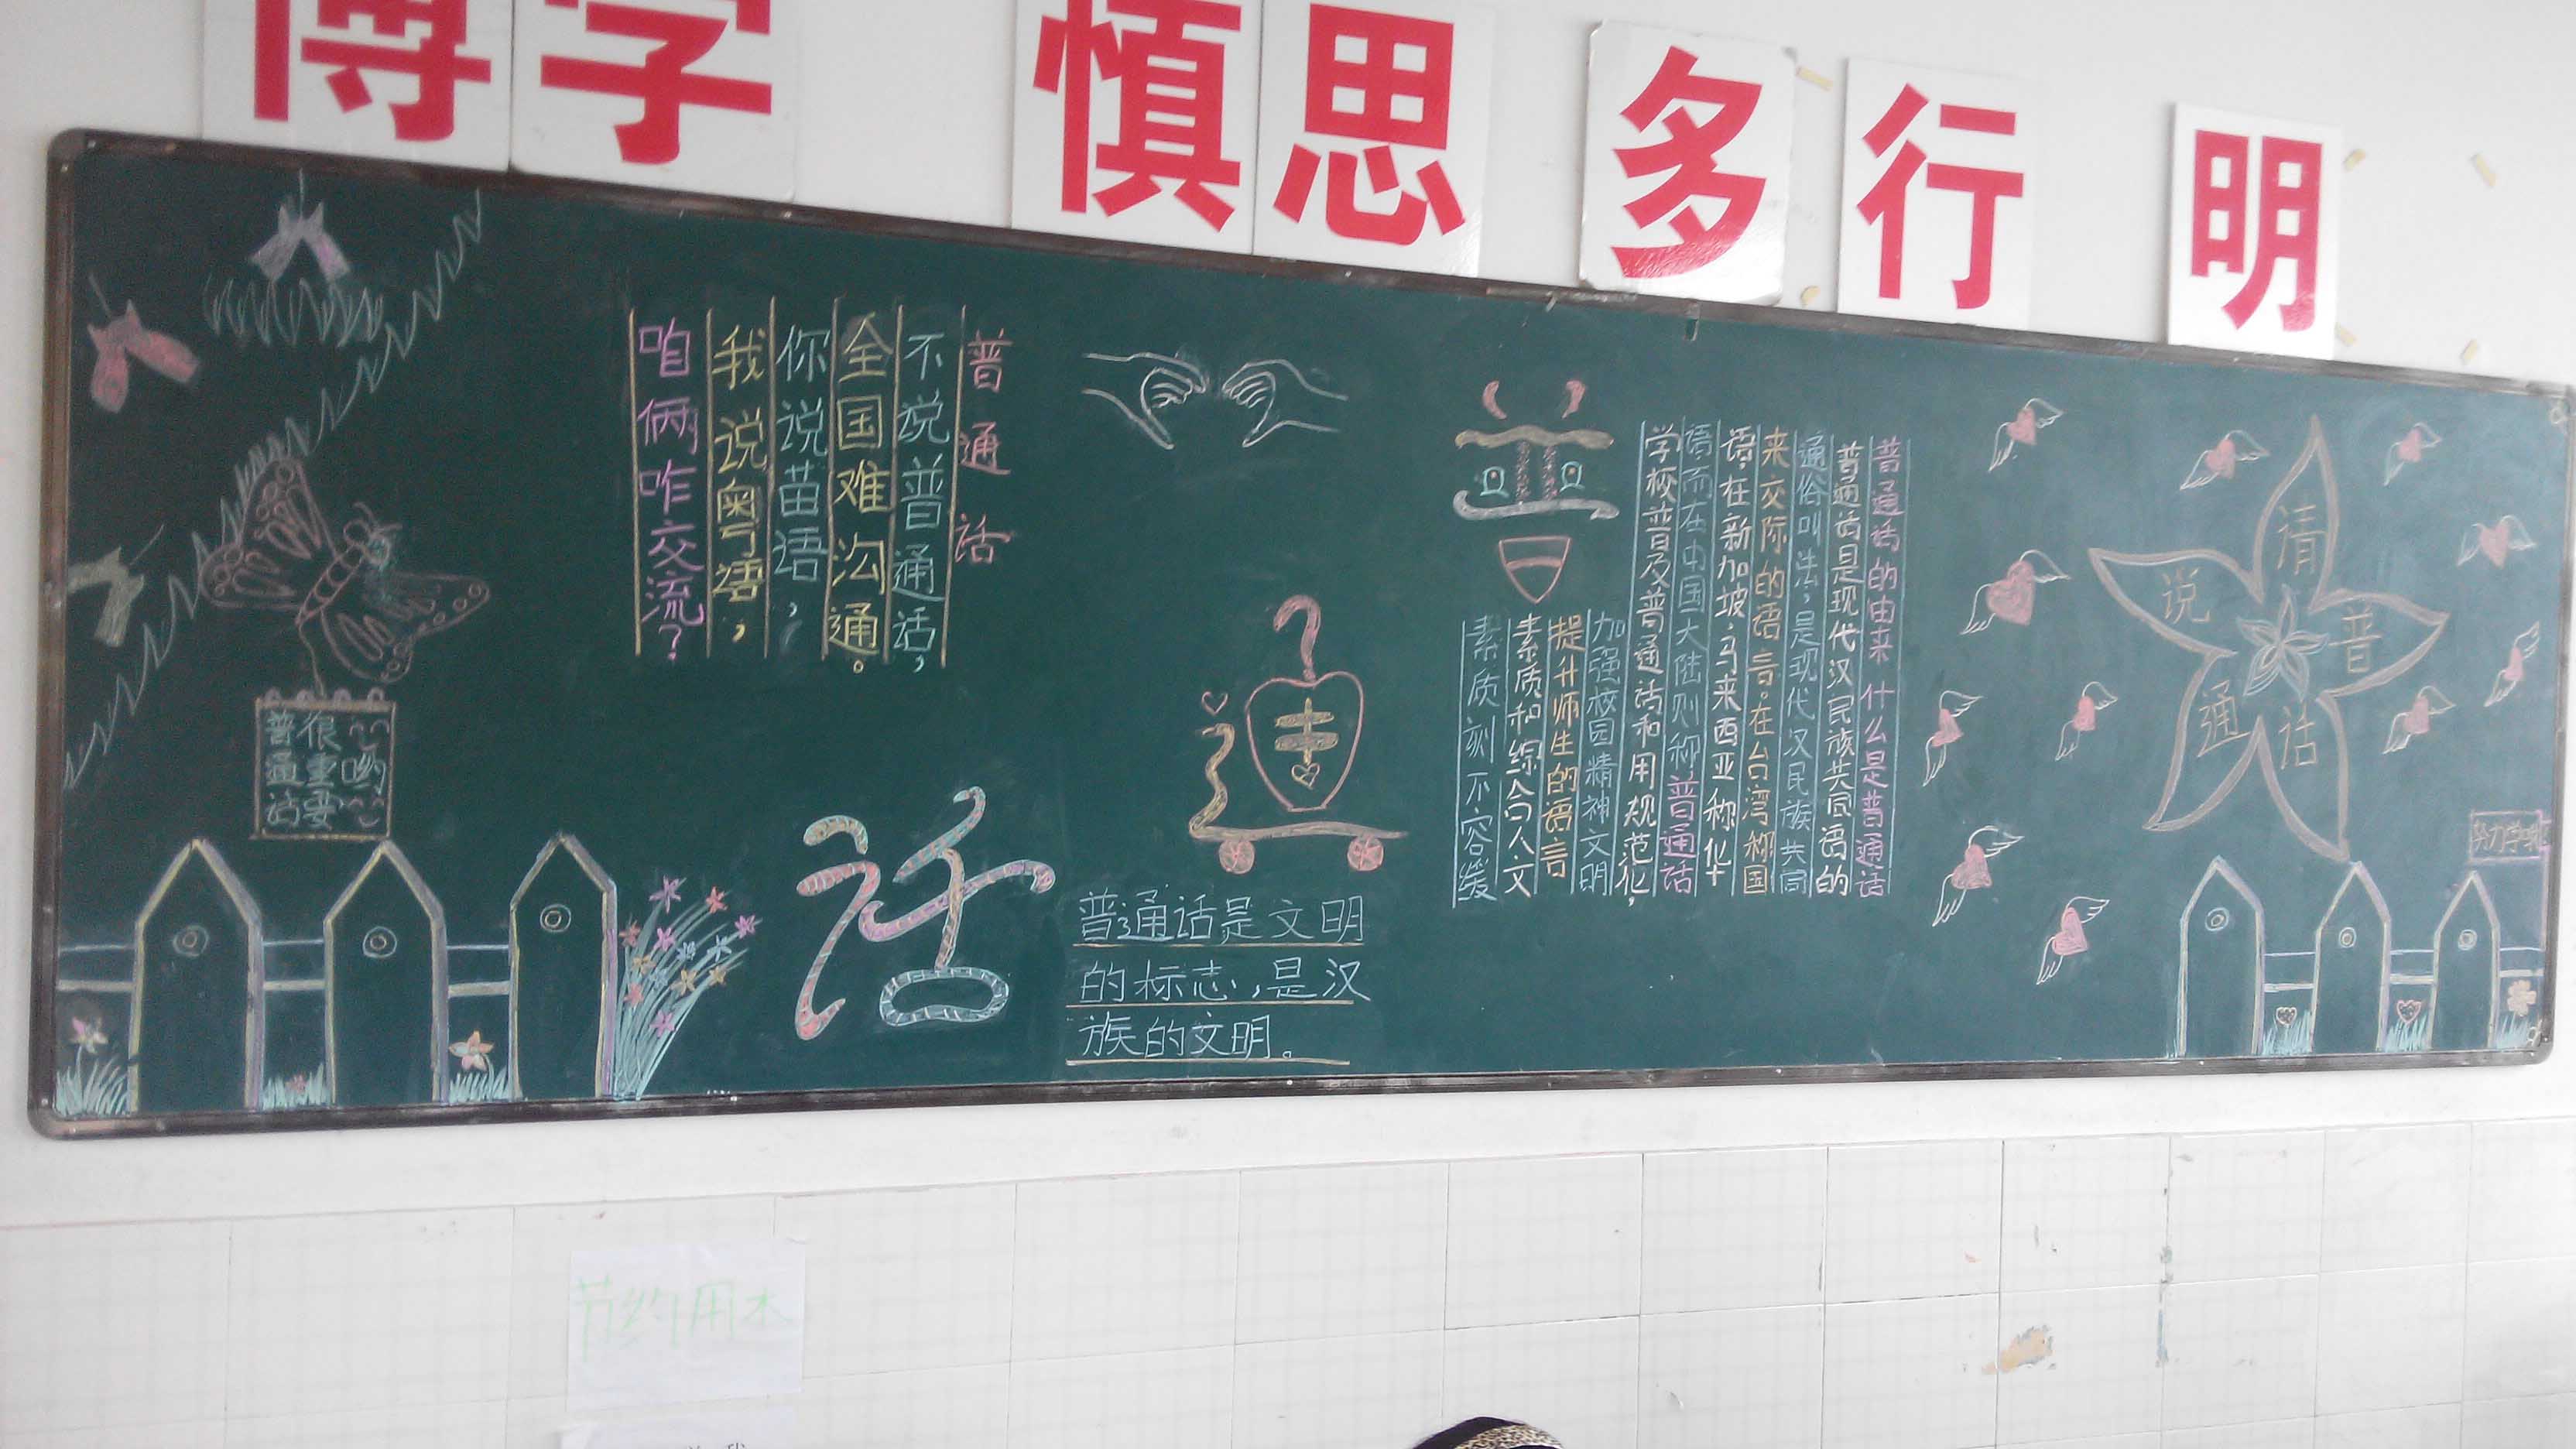 博学 慎思 多行 明
普通话
不说普通话，
全国难沟通。
你说苗语，
我说粤语，
咱俩咋交流？
普通话
很重要
哟
普
通
话
普通话是文明
的标志，是汉
族的文明。
普通话的由来 什么是普通话
普通话是现代汉民族共同语的
通俗叫法，是现代汉民族共同
来交际的语言。在台湾称国
语，在新加坡、马来西亚称华
语，而在中国大陆则称普通话
学校普及普通话和用规范化，
加强校园精神文明
提升师生的语言
素质和综合人文
素质刻不容缓
请
说
普
通
话
努力学习
节约用水